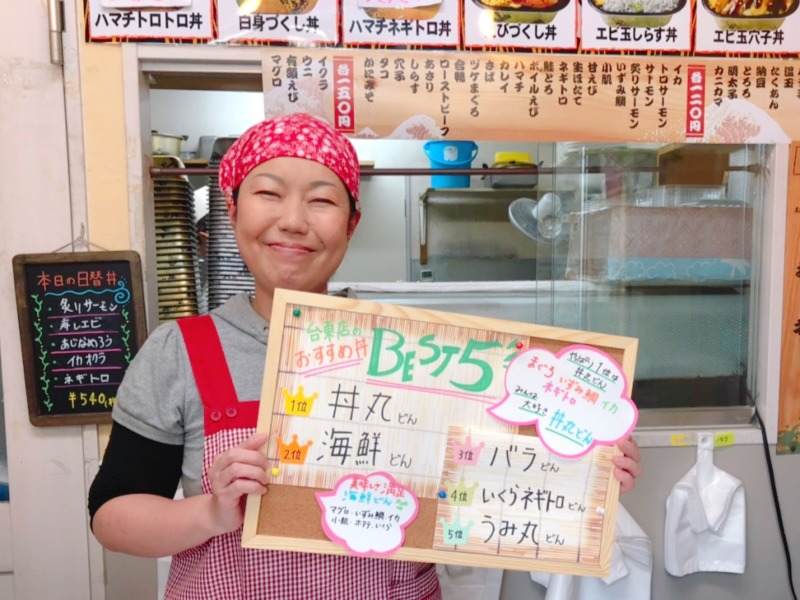 ハマチトロトロ丼
白身づくし丼
ハマチネギトロ丼
えびづくし丼
エビ玉しらす丼
エビ玉穴子丼
イクラ
ウニ
有頭えび
マグロ
各一五〇円
かにみそ
タコ
穴子
しらす
あさり
ローストビーフ
合鴨
ヅケまぐろ
さば
カレイ
ハマチ
ボイルえび
鮭とろ
生ほたて
ネギトロ
甘えび
小肌
いずみ鯛
炙りサーモン
サーモン
トロサーモン
イカ
各一二〇円
カニカマ
明太子
とろろ
納豆
たくあん
温玉
本日の日替丼
・炙りサーモン
・蒸しエビ
・あじなめろう
・イカオクラ
・ネギトロ
¥540
台東店の
おすすめ丼
BEST5
1位 丼丸どん
2位 海鮮どん
3位 バラどん
4位 いくらネギトロどん
5位 うみ丸どん
やっぱり1位は
丼丸どん
まぐろ いずみ鯛 イカ
ネギトロ
みんな
大好き 丼丸どん
美味しさ満足
海鮮どん
マグロ・いずみ鯛・イカ
小肌・ホタテ・いくら